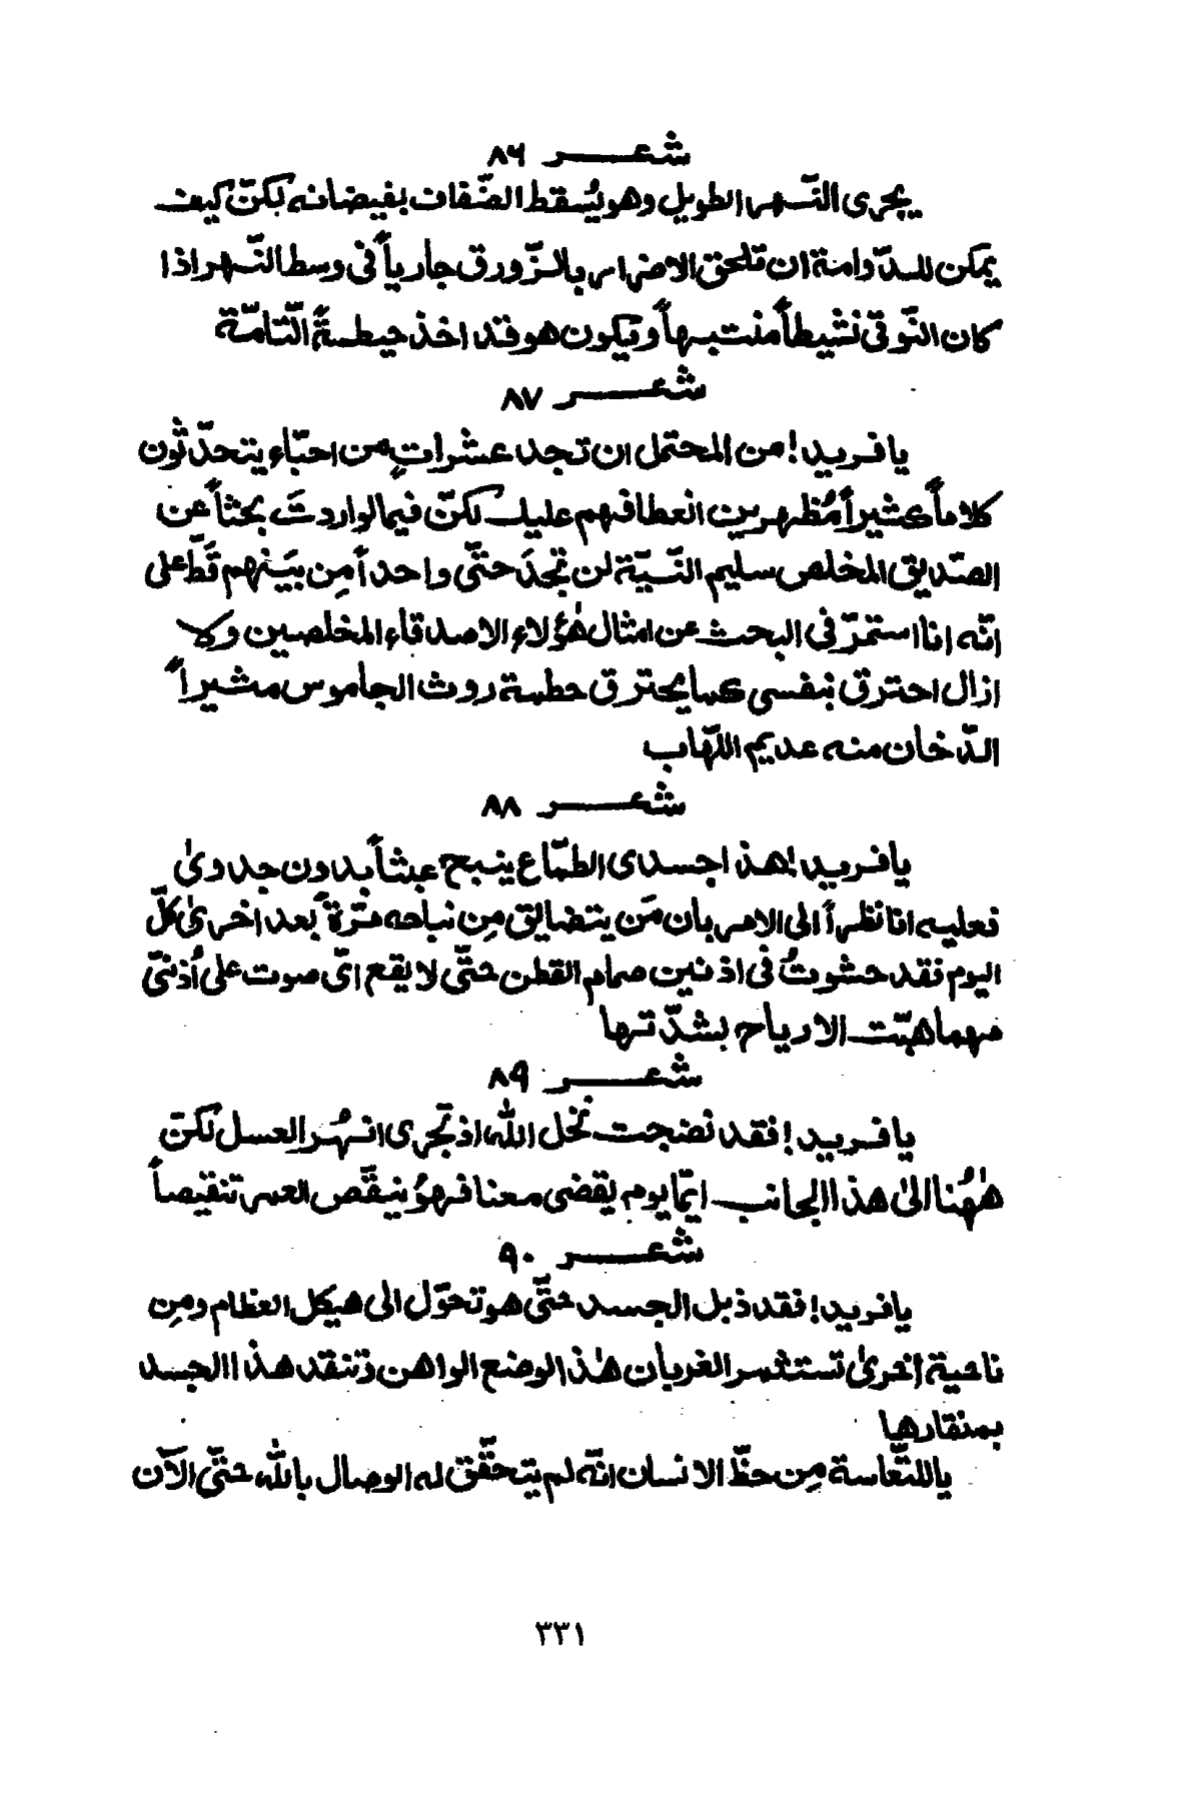 شعـــر ٨٦
يجرى النّهر الطويل وهو يُسقط الضّفات بفيضانه لكنّ كيف
يمكن للدّوامة ان تلحق الاضرار بالزّورق جارياً فى وسط النّهر اذا
كان النّوقى نشيطاً منتبهاً ويكون هو قد اخذ حيطةً التّامّة
شعـــر ٨٧
يا فريد! من المحتمل ان تجد عشراتٍ من احبّاء يتحدّثون
كلاماً كثيراً مُظهرين انعطافهم عليك لكنّ فيما لو اردتَ بحثاً عن
الصّديق المخلص سليم النّيّة لن تجدَ حتّى واحداً مِن بَينهم قَطّ على
انّه انا استمرّ فى البحث عن امثال هٰؤلاء الاصدقاء المخلصين ولا
ازال احترق بنفسى كما يحترق حطبة روث الجاموس مشيراً
الدّخان منه عديم اللّهاب
شعـــر ٨٨
يا فريد! هذا جسدى الطمّاع ينبح عبثاً بدون جدوىٰ
فعليه انا نظراً الى الامر بان مَن يتضايق مِن نباحه فترةً بعد اخرىٰ كلّ
اليوم فقد حشوتُ فى اذنين صمام القطن حتّى لا يقع اىّ صوت على اُذنىّ
مهما هبّت الارياح بشدّتها
شعـــر ٨٩
يا فريد! فقد نضجت نخل اللّٰه اذ تجرى انهُر العسل لكنّ
هٰهُنا الىٰ هذا الجانب ايمّا يوم يقضى معنا فهوُ ينقّص العمر تنقيصاً
شعـــر ٩٠
يا فريد! فقد ذبل الجسد حتّى هو تحوّل الى هيكل العظام ومِن
ناحية اُخرىٰ تستثمر الغربان هٰذا الوضع الواهن وتنقد هذا الجسد
بمنقارها
يا للتّعاسة مِن حظّ الانسان انّه لم يتحقّق له الوصال باللّٰه حتّى الآن
٣٣١